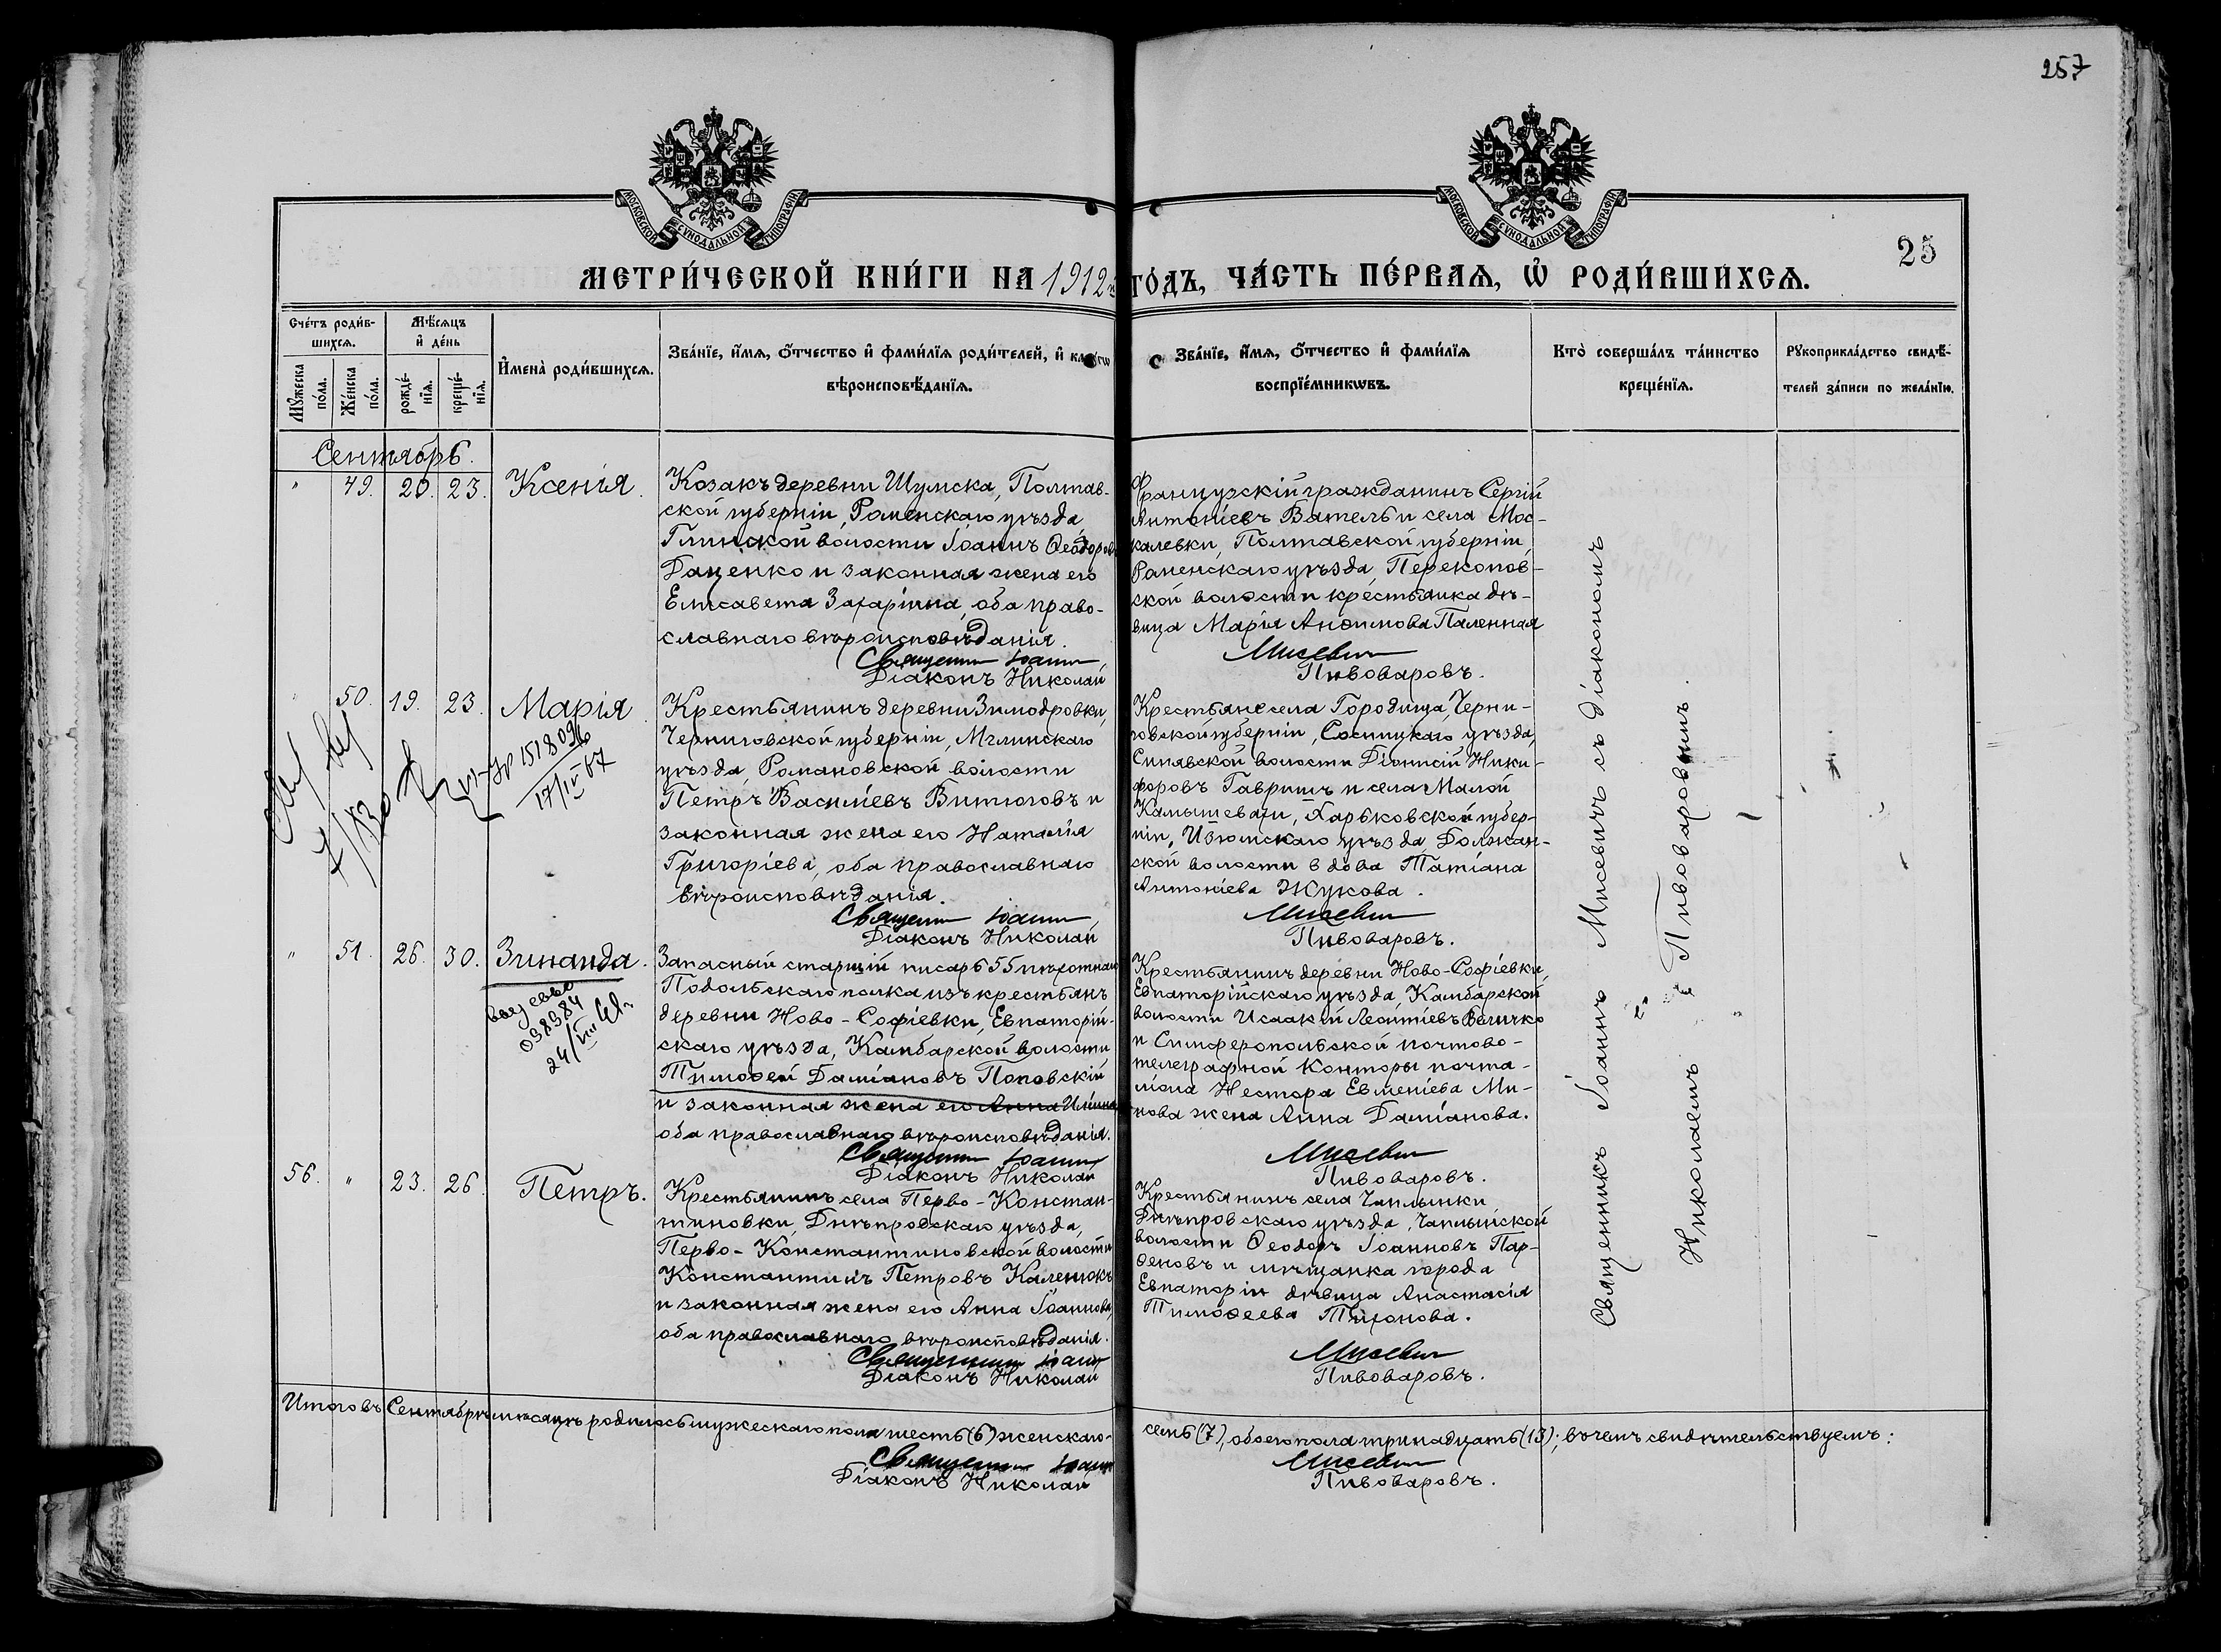 257
МОСКОВСКОЙ СѴНОДАЛЬНОЙ ТИПОГРАФІИ
МОСКОВСКОЙ СѴНОДАЛЬНОЙ ТИПОГРАФІИ
25
МЕТРИ́ЧЕСКОЙ КНИ́ГИ НА 1912 ГО́ДЪ, ЧА́СТЬ ПЕ́РВАѦ, Ѡ҆ РОДИ́ВШИХСѦ.
Сче́тъ роди́в-
шихсѧ.
Мѣ́сѧцъ
и҆ де́нь
Мꙋ́жеска
по́ла.
Же́нска
по́ла.
рожде́-
нїѧ.
креще́-
нїѧ.
И҆мена̀ роди́вшихсѧ.
Зва́нїе, и҆́мѧ, ѻ҆́тчество и҆ фами́лїѧ роди́телей, и҆
вѣроисповѣ́данїѧ.
Зва́нїе, и҆́мѧ, ѻ҆́тчество и҆ фами́лїѧ
воспрїе́мникѡвъ.
Кто̀ соверша́лъ та́инство
креще́нїѧ.
Рꙋкоприкла́дство свидѣ́-
телей за́писи по жела́нїю.
Сентябрь.
" 49. 20. 23. Ксенія.
Козакъ деревни Шумска, Полтав-
ской губерніи, Роменскаго уѣзда,
Глинской волости Іоаннъ Ѳеодоровъ
Даценко и законная жена его
Елисавета Захаріина, оба право-
славнаго вѣроисповѣданія.
Священникъ Іоаннъ
Діаконъ Николай
Французскій гражданинъ Сергій
Антоніевъ Ватель и села Мос-
калевки, Полтавской губерніи,
Роменскаго уѣзда, Перекопов-
ской волости крестьянка дѣ-
вица Марія Анѳимова Паленная
Мисевич
Пивоваровъ.
" 50. 19. 23. Марія.
№ 151809
17/IV 67
Крестьянинъ деревни Зимодровки,
Черниговской губерніи, Мглинскаго
уѣзда, Романовской волости
Петръ Василіевъ Битюговъ и
законная жена его Наталія
Григоріева, оба православнаго
вѣроисповѣданія.
Священникъ Іоаннъ
Діаконъ Николай
Крестьяне села Городища, Черни-
говской губерніи, Сосницкаго уѣзда,
Синявской волости Діонисій Ники-
форовъ Гавришъ и села Малой
Камышевахи, Харьковской губер-
ніи, Изюмскаго уѣзда, Должан-
ской волости вдова Татіана
Антоніева Жукова.
Мисевич
Пивоваровъ.
" 51. 26. 30. Зинаида.
038984
24/VIII
Запасный старшій писарь 55 пѣхотнаго
Подольскаго полка изъ крестьянъ
деревни Ново-Софіевки, Евпаторій-
скаго уѣзда, Камбарской волости
Тимоѳей Даміановъ Поповскій
и законная жена его Анна Иліина
оба православнаго вѣроисповѣданія.
Священникъ Іоаннъ
Діаконъ Николай
Крестьянинъ деревни Ново-Софіевки,
Евпаторійскаго уѣзда, Камбарской
волости Исаакій Леонтіевъ Величко
и Симферопольской почтово-
телеграфной конторы почта-
ліона Нестора Евменіева Ми-
нова жена Анна Даміанова.
Мисевич
Пивоваровъ.
56. " 23. 26. Петръ.
Крестьянинъ села Перво-Констан-
тиновки, Днѣпровскаго уѣзда,
Перво-Константиновской волости
Константинъ Петровъ Каленюкъ
и законная жена его Анна Іоаннова,
оба православнаго вѣроисповѣданія.
Священникъ Іоаннъ
Діаконъ Николай
Крестьянинъ села Чаплынки
Днѣпровскаго уѣзда, Чаплынской
волости Ѳеодоръ Іоанновъ Пар-
ѳеновъ и мѣщанка города
Евпаторіи дѣвица Анастасія
Тимоѳеева Тихонова.
Мисевич
Пивоваровъ.
Священникъ Іоаннъ Мисевичъ съ діакономъ
Николаемъ Пивоваровымъ.
Итого въ Сентябрѣ мѣсяцѣ родилось мужескаго пола шесть (6) женскаго- семь (7), обоего пола тринадцать (13); въ чемъ свидѣтельствуемъ:
Священникъ Іоаннъ Мисевич
Діаконъ Николай Пивоваровъ.